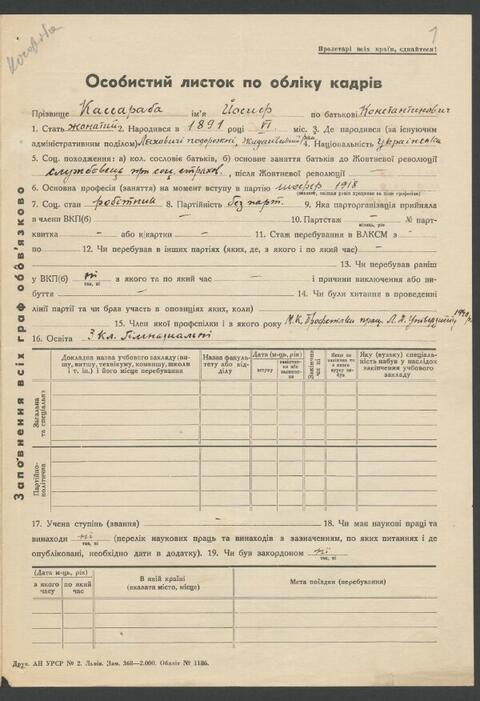 1
Пролетарі всіх країн, єднайтеся!
Особистий листок по обліку кадрів
Прізвище Кассараба ім'я Йосиф по батькові Константинович
1. Стать жонатий 2. Народився в 1891 році VI міс. 3. Де народився (за існуючим
адміністративним поділом) 4. Національність українець
5. Соц. походження: а) кол. сословіє батьків, б) основне заняття батьків до Жовтневої революції
службовець при соц. страхов., після Жовтневої революції —
6. Основна професія (заняття) на момент вступу в партію шофер 1918
7. Соц. стан робітник 8. Партійність безпарт. 9. Яка парторганізація прийняла
в члени ВКП(б) — 10. Партстаж — № парт-
місяць, рік
квитка — або к/картки — 11. Стаж перебування в ВЛКСМ з —
по — 12. Чи перебував в інших партіях (яких, де, з якого і по який час) —
13. Чи перебував раніш
у ВКП(б) ні з якого та по який час — і причини виключення або ви-
так, ні
буття — 14. Чи були хитання в проведенні
лінії партії та чи брав участь в опозиціях яких, коли) —
15. Член якої профспілки і з якого року
16. Освіта 3 кл. гімназіальні
Докладна назва учбового закладу (ви-
шу, витшу, технікуму, комвишу, школи
і т. ін.) і його місце перебування
Назва факуль-
тету або від-
ділу
Дата (м-ць, рік)
вступу
Закінчив
чи ні
Яку (вузьку) спеціаль-
ність набув в наслідок
закінчення учбового
закладу
Загальна
та спеціальна
Партійно-
політична
17. Учена ступінь (звання) — 18. Чи має наукові праці та
винаходи ні (перелік наукових праць та винаходів з зазначенням, по яких питаннях і де
так, ні
опубліковані, необхідно дати в додатку). 19. Чи був закордоном ні
так, ні
(Дата м-ць, рік)
з якого
часу
по який
час
В якій країні
(вказати місто, місце)
Мета поїздки (перебування)
Друк. АН УРСР № 2. Львів. Зам. 368—2.000. Обліт № 1186.
Заповнення всіх граф обов'язково